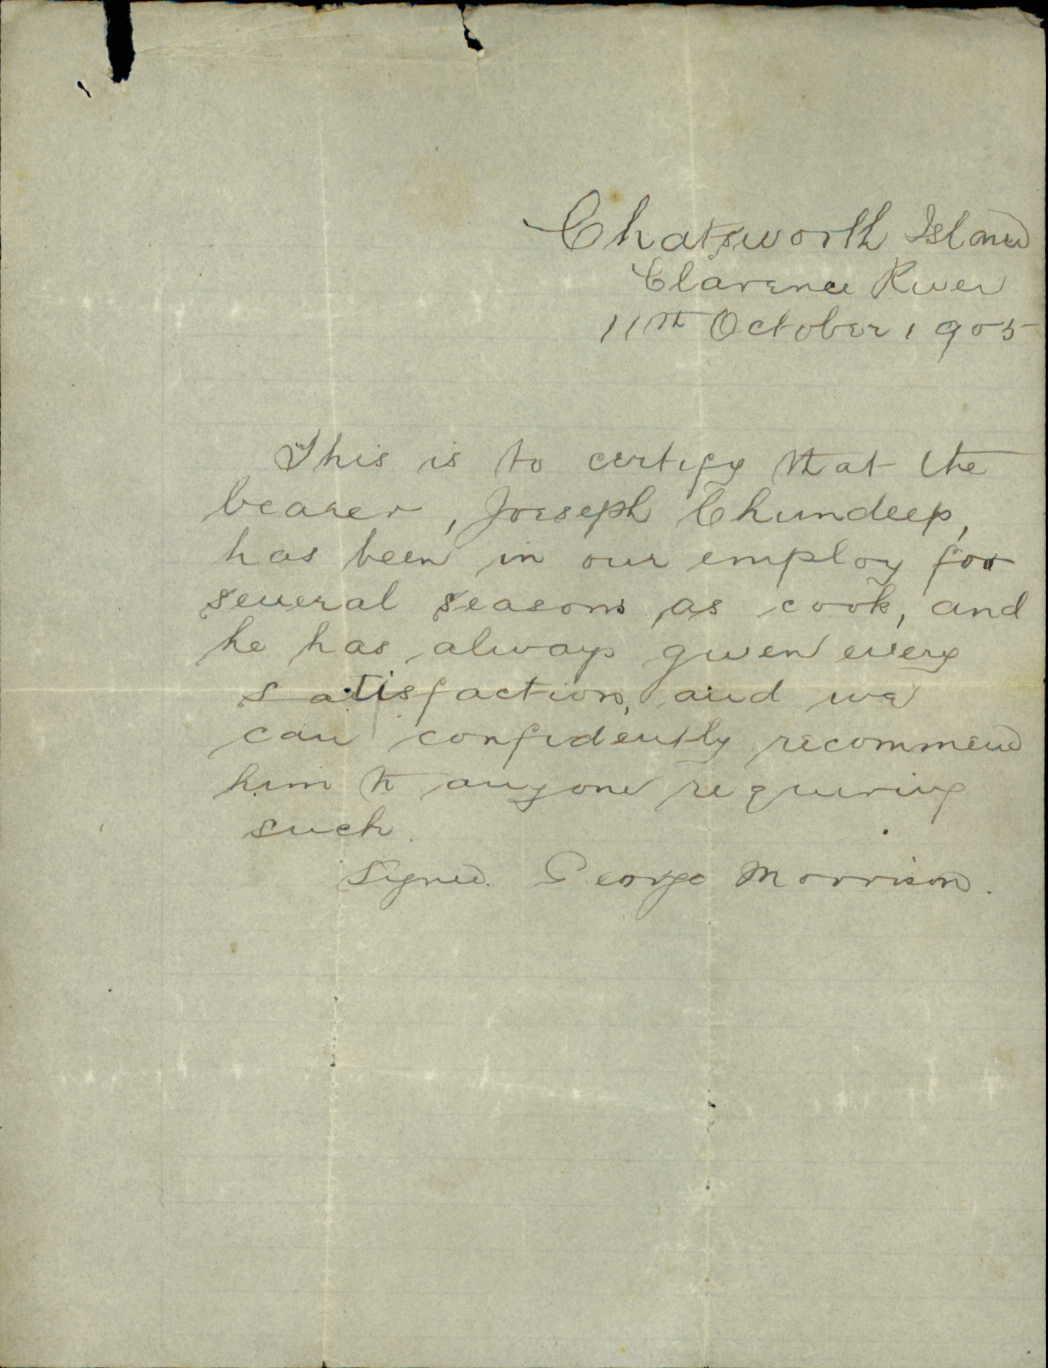 Chatsworth Island
Clarence River
11th October 1905
This is to certify that the
bearer, Joeseph Chundeep,
has been in our employ for
several seasons as cook, and
he has always given every
satisfaction, and we
can confidently recommend
him to anyone requiring
such.
Signed. George Morrison.